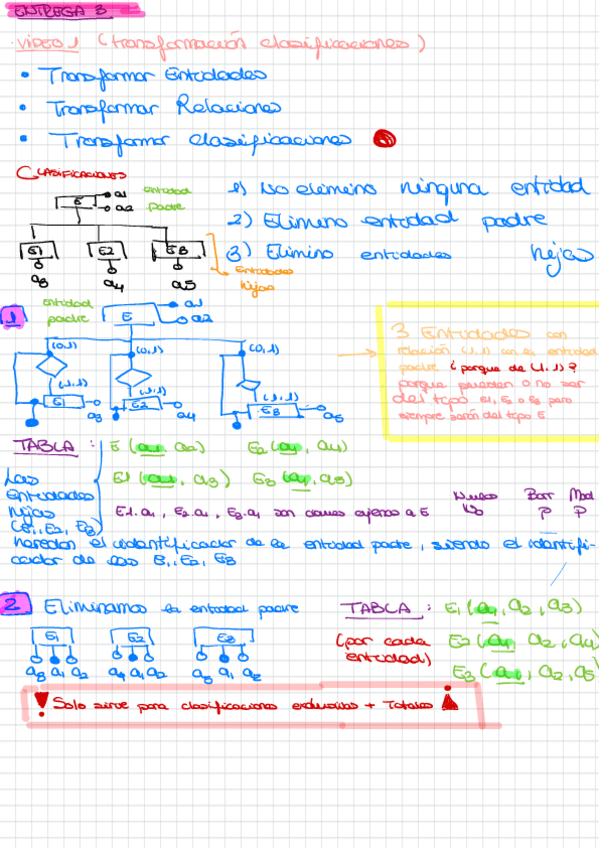 ENTREGA 3
VÍDEO 1 (transformación clasificaciones)
• Transformar Entidades
• Transformar Relaciones
• Transformar clasificaciones
CLASIFICACIONES
E a1 a2 entidad padre
E1 E2 E3
a3 a4 a5
Entidades hijas
1) No elimino ninguna entidad
2) Elimino entidad padre
3) Elimino entidades hijas
1 entidad padre E a1 a2
(0,1) (0,1) (0,1)
(1,1) (1,1) (1,1)
E1 a3 E2 a4 E3 a5
3 Entidades con
relación (1,1) con la entidad
padre ¿porque de (1,1)?
porque pueden o no ser
del tipo E1, E2 o E3 pero
siempre serán del tipo E
TABLA : E (a1, a2) E2 (a1, a4)
E1 (a1, a3) E3 (a1, a5)
E1.a1, E2.a1, E3.a1 son claves ajenas a E
Nulos Borr Mod
No P P
Las
entidades
hijas
(E1, E2, E3)
heredan el identificador de la entidad padre, siendo el identifi-
cador de las E1, E2, E3
2 Eliminamos la entidad padre
E1 E2 E3
a3 a1 a2 a4 a1 a2 a5 a1 a2
TABLA : E1 (a1, a2, a3)
(por cada entidad) E2 (a1, a2, a4)
E3 (a1, a2, a5)
! Solo sirve para clasificaciones exclusivas + Totales !